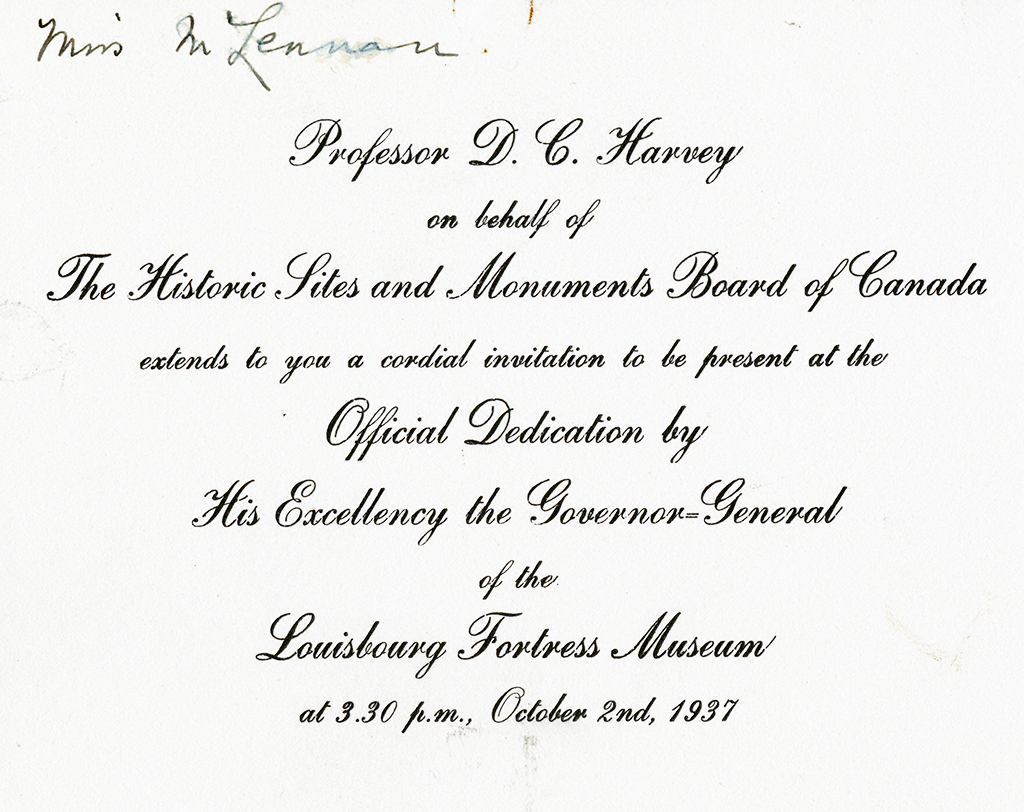 Miss McLennan.
Professor D. C. Harvey
on behalf of
The Historic Sites and Monuments Board of Canada
extends to you a cordial invitation to be present at the
Official Dedication by
His Excellency the Governor=General
of the
Louisbourg Fortress Museum
at 3.30 p.m., October 2nd, 1937